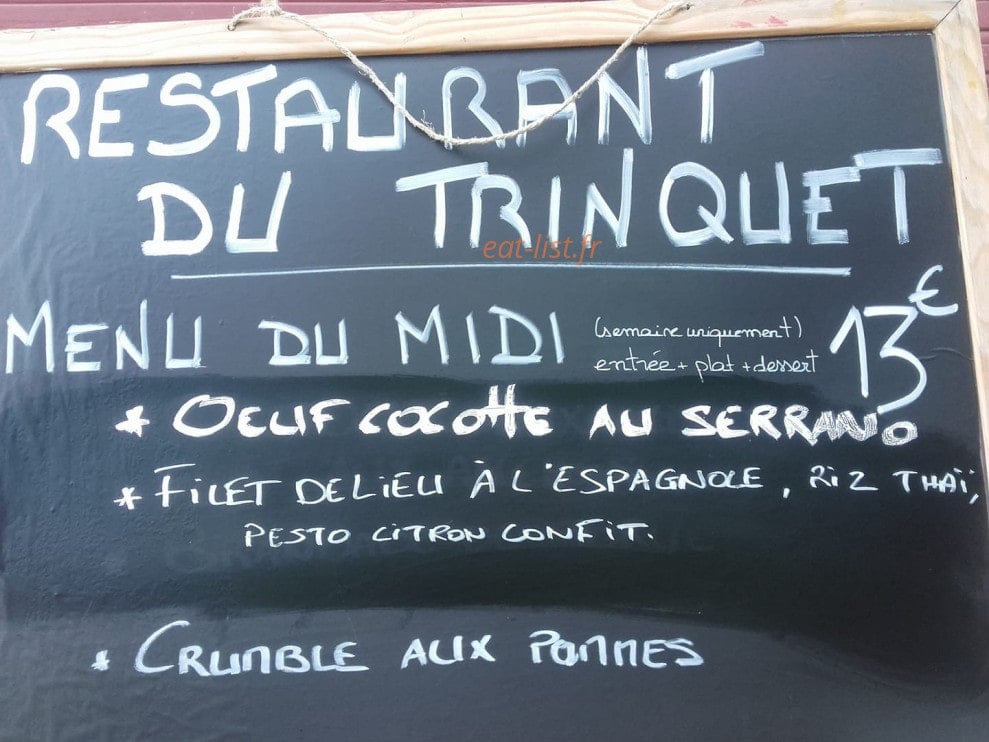 RESTAURANT
DU TRINQUET
eat-list.fr
MENU DU MIDI (semaine uniquement) 13€
entrée + plat + dessert
* OEUF COCOTTE AU SERRANO
* FILET DE LIEU À L'ESPAGNOLE, RIZ THAÏ,
PESTO CITRON CONFIT.
* CRUMBLE AUX POMMES